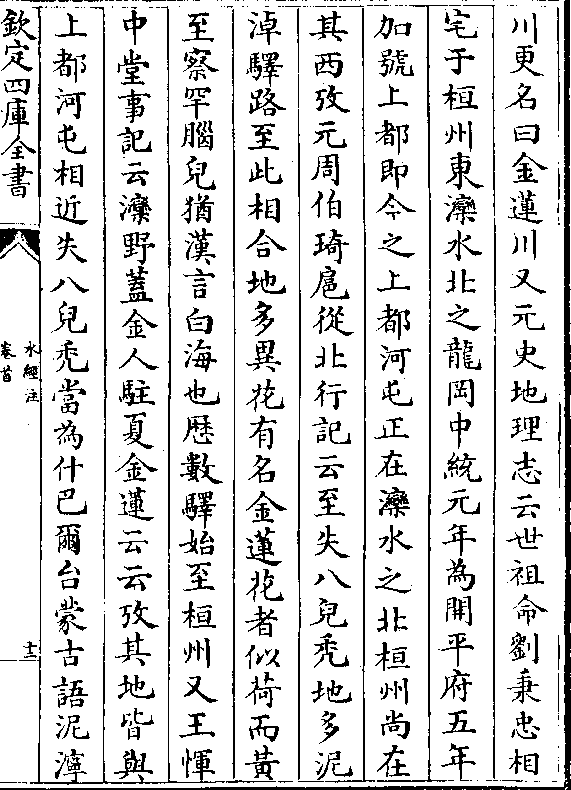 川更名曰金蓮川又元史地理志云世祖命劉秉忠相
宅于桓州東灤水北之龍岡中統元年為開平府五年
加號上都即今之上都河屯正在灤水之北桓州尚在
其西攷元周伯琦扈從北行記云至失八兒禿地多泥
淖驛路至此相合地多異花有名金蓮花者似荷而黃
至察罕腦兒猶漢言白海也歷數驛始至桓州又王惲
中堂事記云灤野蓋金人駐夏金蓮云云攷其地皆與
上都河屯相近失八兒禿當為什巴爾台蒙古語泥濘
欽定四庫全書
水經注
卷首
十二